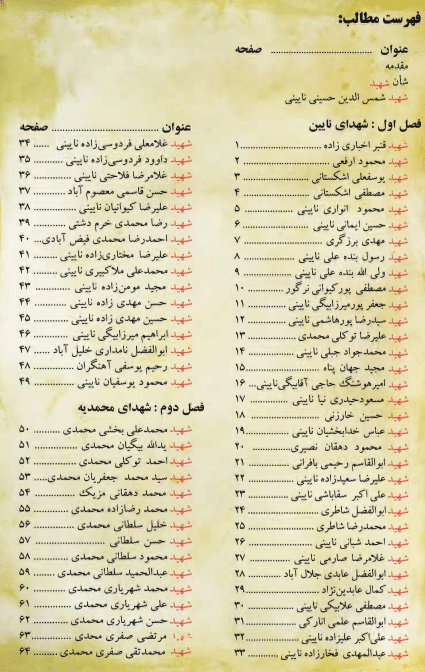 فهرست مطالب:
عنوان ........................ صفحه
مقدمه
شأن شهید
شهید شمس الدین حسینی نایینی
فصل اول : شهدای نایین
شهید قنبر اخباری زاده ........................ ۱
شهید محمود ارفعی ........................ ۲
شهید یوسفعلی اشکستانی ........................ ۳
شهید مصطفی اشکستانی ........................ ۴
شهید محمود انواری نایینی ........................ ۵
شهید حسین ایمانی نایینی ........................ ۶
شهید مهدی برزگری ........................ ۷
شهید رسول بنده علی نایینی ........................ ۸
شهید ولی الله بنده علی نایینی ........................ ۹
شهید مصطفی پورکیوانی نرگور ............ ۱۰
شهید جعفر پورمیرزابیگی نایینی ............ ۱۱
شهید سیدرضا پورهاشمی نایینی ............ ۱۲
شهید علیرضا توکلی محمدی ............ ۱۳
شهید محمدجواد جبلی نایینی ............ ۱۴
شهید مجید جهان پناه ........................ ۱۵
شهید امیرهوشنگ حاجی آقابیگی‌نایینی... ۱۶
شهید مسعودحیدری نیا نایینی ............ ۱۷
شهید حسین خارزنی ........................ ۱۸
شهید عباس خدابخشیان نایینی ............ ۱۹
شهید محمود دهقان نصیری ............ ۲۰
شهید ابوالقاسم رحیمی بافرانی ............ ۲۱
شهید علیرضا سعیدزاده نایینی ............ ۲۲
شهید علی اکبر سقاباشی نایینی ............ ۲۳
شهید ابوالفضل شاطری ........................ ۲۴
شهید محمدرضا شاطری ........................ ۲۵
شهید احمد شبانی نایینی ........................ ۲۶
شهید غلامرضا صارمی نایینی ............ ۲۷
شهید ابوالفضل عابدی جلال آباد ............ ۲۸
شهید کمال عابدین‌نژاد ........................ ۲۹
شهید مصطفی علابیکی نایینی ............ ۳۰
شهید ابوالقاسم علمی انارکی ............ ۳۱
شهید علی‌اکبر علیزاده نایینی ............ ۳۲
شهید عبدالمهدی فخارزاده نایینی ............ ۳۳
عنوان ........................ صفحه
شهید غلامعلی فردوسی‌زاده نایینی ...... ۳۴
شهید داوود فردوسی‌زاده نایینی ............ ۳۵
شهید غلامرضا فلاحتی نایینی ............ ۳۶
شهید حسن قاسمی معصوم آباد ............ ۳۷
شهید علیرضا کیوانیان نایینی ............ ۳۸
شهید رضا محمدی خرم دشتی ............ ۳۹
شهید احمدرضا محمدی فیض آبادی... ۴۰
شهید علیرضا مختاری‌زاده نایینی ........ ۴۱
شهید محمدعلی ملاکبیری نایینی ........ ۴۲
شهید مجید مومن‌زاده نایینی ............ ۴۳
شهید حسن مهدی زاده نایینی ............ ۴۴
شهید حسین مهدی زاده نایینی ............ ۴۵
شهید ابراهیم میرزابیگی نایینی ............ ۴۶
شهید ابوالفضل نامداری خلیل آباد ...... ۴۷
شهید رحیم یوسفی آهنگران ............ ۴۸
شهید محمود یوسفیان نایینی ............ ۴۹
فصل دوم : شهدای محمدیه
شهید محمدعلی بخشی محمدی ........ ۵۰
شهید یدالله بیگیان محمدی ............ ۵۱
شهید احمد توکلی محمدی ............ ۵۲
شهید سید محمد جعفریان محمدی.... ۵۳
شهید محمد دهقانی مزیک ............ ۵۴
شهید محمد رضازاده محمدی ............ ۵۵
شهید خلیل سلطانی محمدی ............ ۵۶
شهید حسن سلطانی ............ ۵۷
شهید محمود سلطانی محمدی ............ ۵۸
شهید عبدالحمید سلطانی محمدی ........ ۵۹
شهید محمد شهریاری محمدی ............ ۶۰
شهید علی شهریاری محمدی ............ ۶۱
شهید حسن شهریاری محمدی ............ ۶۲
شهید مرتضی صفری محدی ............ ۶۳
شهید محمدتقی صفری محمدی ........ ۶۴